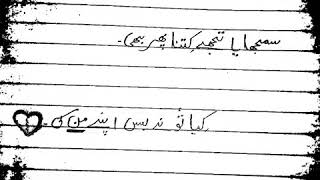 سمجھایا تجھے کتنا پھر بھی۔
کیا تُو نہ بس اپنے من کی۔